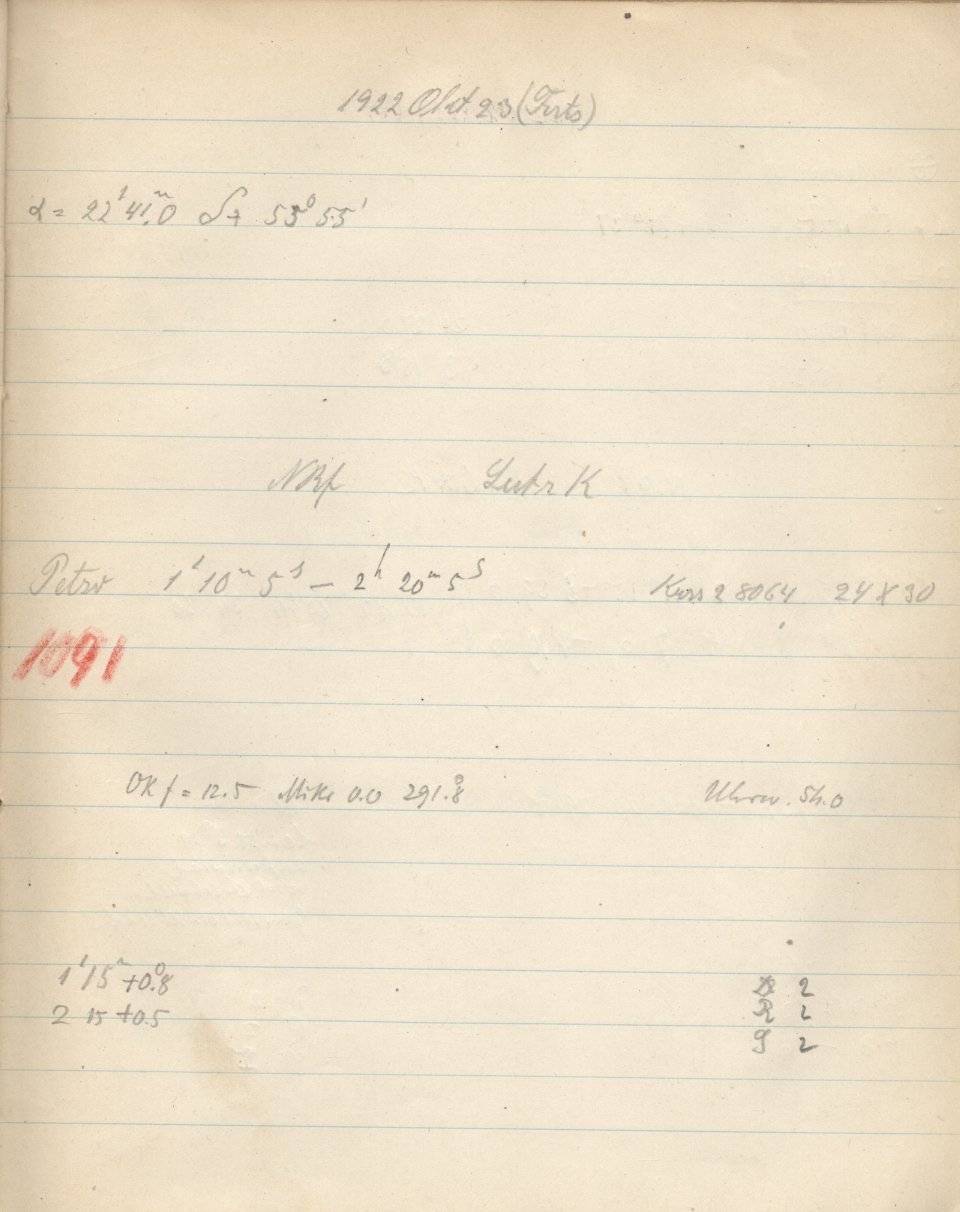 1922 Okt 23 (Forts)
α = 22ʰ 41.ᵐ0 δ + 53° 55'
NRf Lutz K
Petzv 1ʰ 10ᵐ 5ˢ — 2ʰ 20ᵐ 5ˢ Kass 2 8064 24 X 30
1091
OK f = 12.5 Mikr 0.0 291.°8 Uhrw. Sh.0
1ʰ 15ᵐ +0.°8 2
2 15 +0.5 R 2
G 2